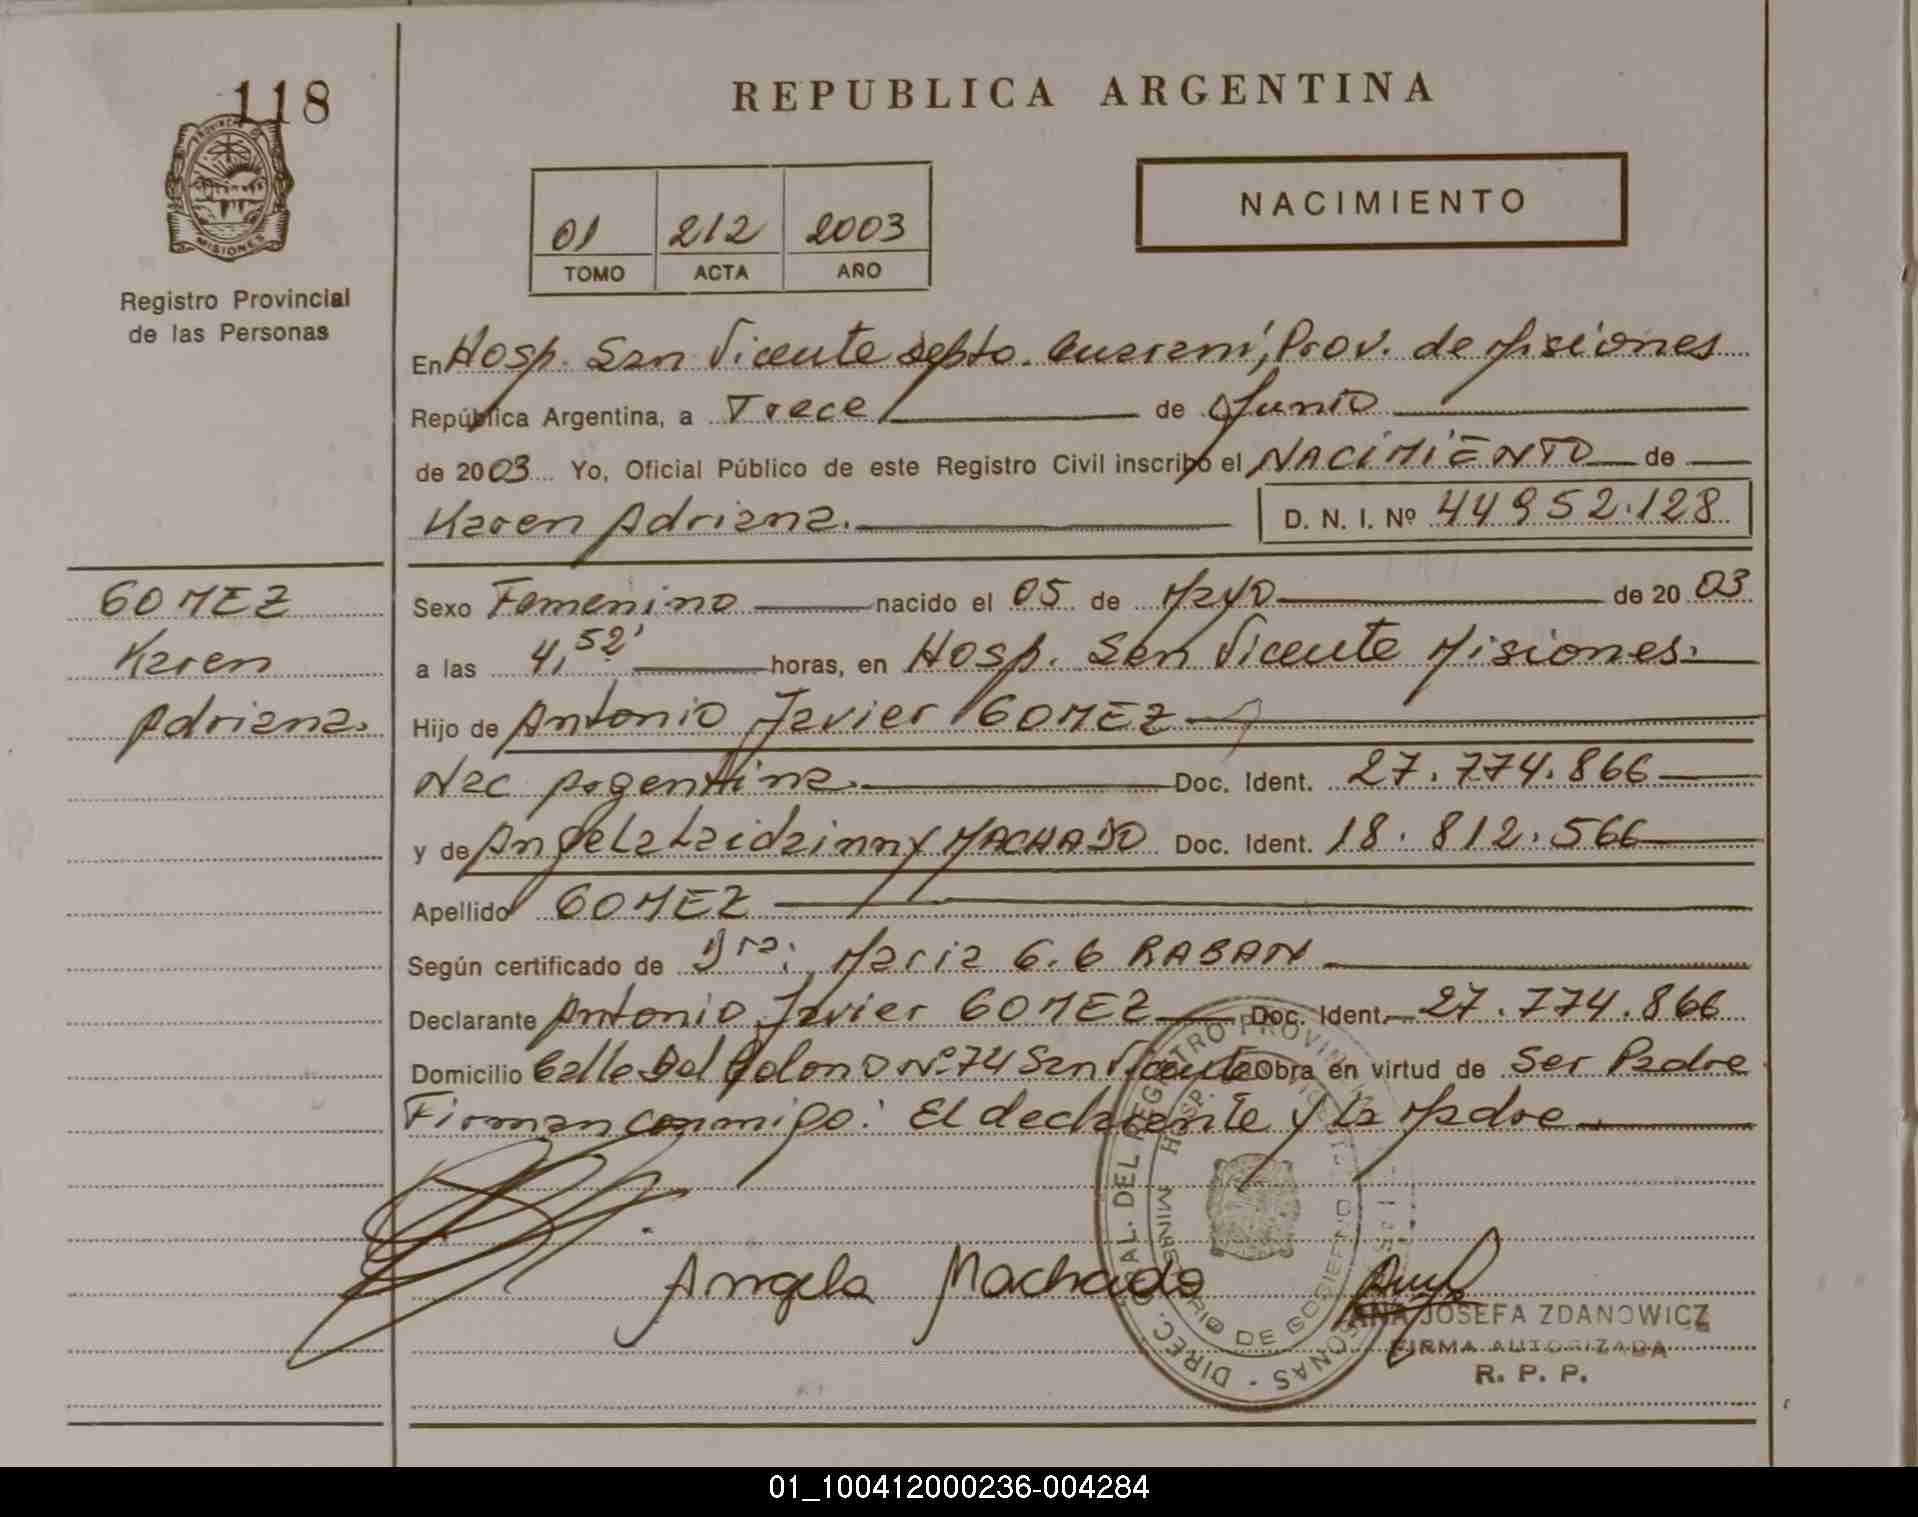 118
PROVINCIA DE
MISIONES
Registro Provincial
de las Personas
REPUBLICA ARGENTINA
01 212 2003
TOMO ACTA AÑO
NACIMIENTO
En Hosp. San Vicente depto. Guarani, Prov. de Misiones
República Argentina, a Trece de Junio
de 2003 Yo, Oficial Público de este Registro Civil inscribo el NACIMIENTO de
Karen Adriana. D. N. I. Nº 44952.128
GOMEZ
Karen
Adriana.
Sexo Femenino nacido el 05 de Mayo de 2003
a las 4,52' horas, en Hosp. San Vicente Misiones.
Hijo de Antonio Javier GOMEZ
Nac Argentina. Doc. Ident. 27.774.866
y de Angela MACHADO Doc. Ident. 18.812.566
Apellido GOMEZ
Según certificado de Dra: Maria G. G RABAN
Declarante Antonio Javier GOMEZ Doc. Ident. 27.774.866
Domicilio Calle Del Colono Nº 74 San Vicente Obra en virtud de Ser Padre
Firman conmigo: El declarante y la Madre.
Angela Machado
DIREC. GRAL. DEL REGISTRO PROVINCIAL
MINISTERIO DE GOBIERNO
ANA JOSEFA ZDANOWICZ
FIRMA AUTORIZADA
R. P. P.
01_100412000236-004284